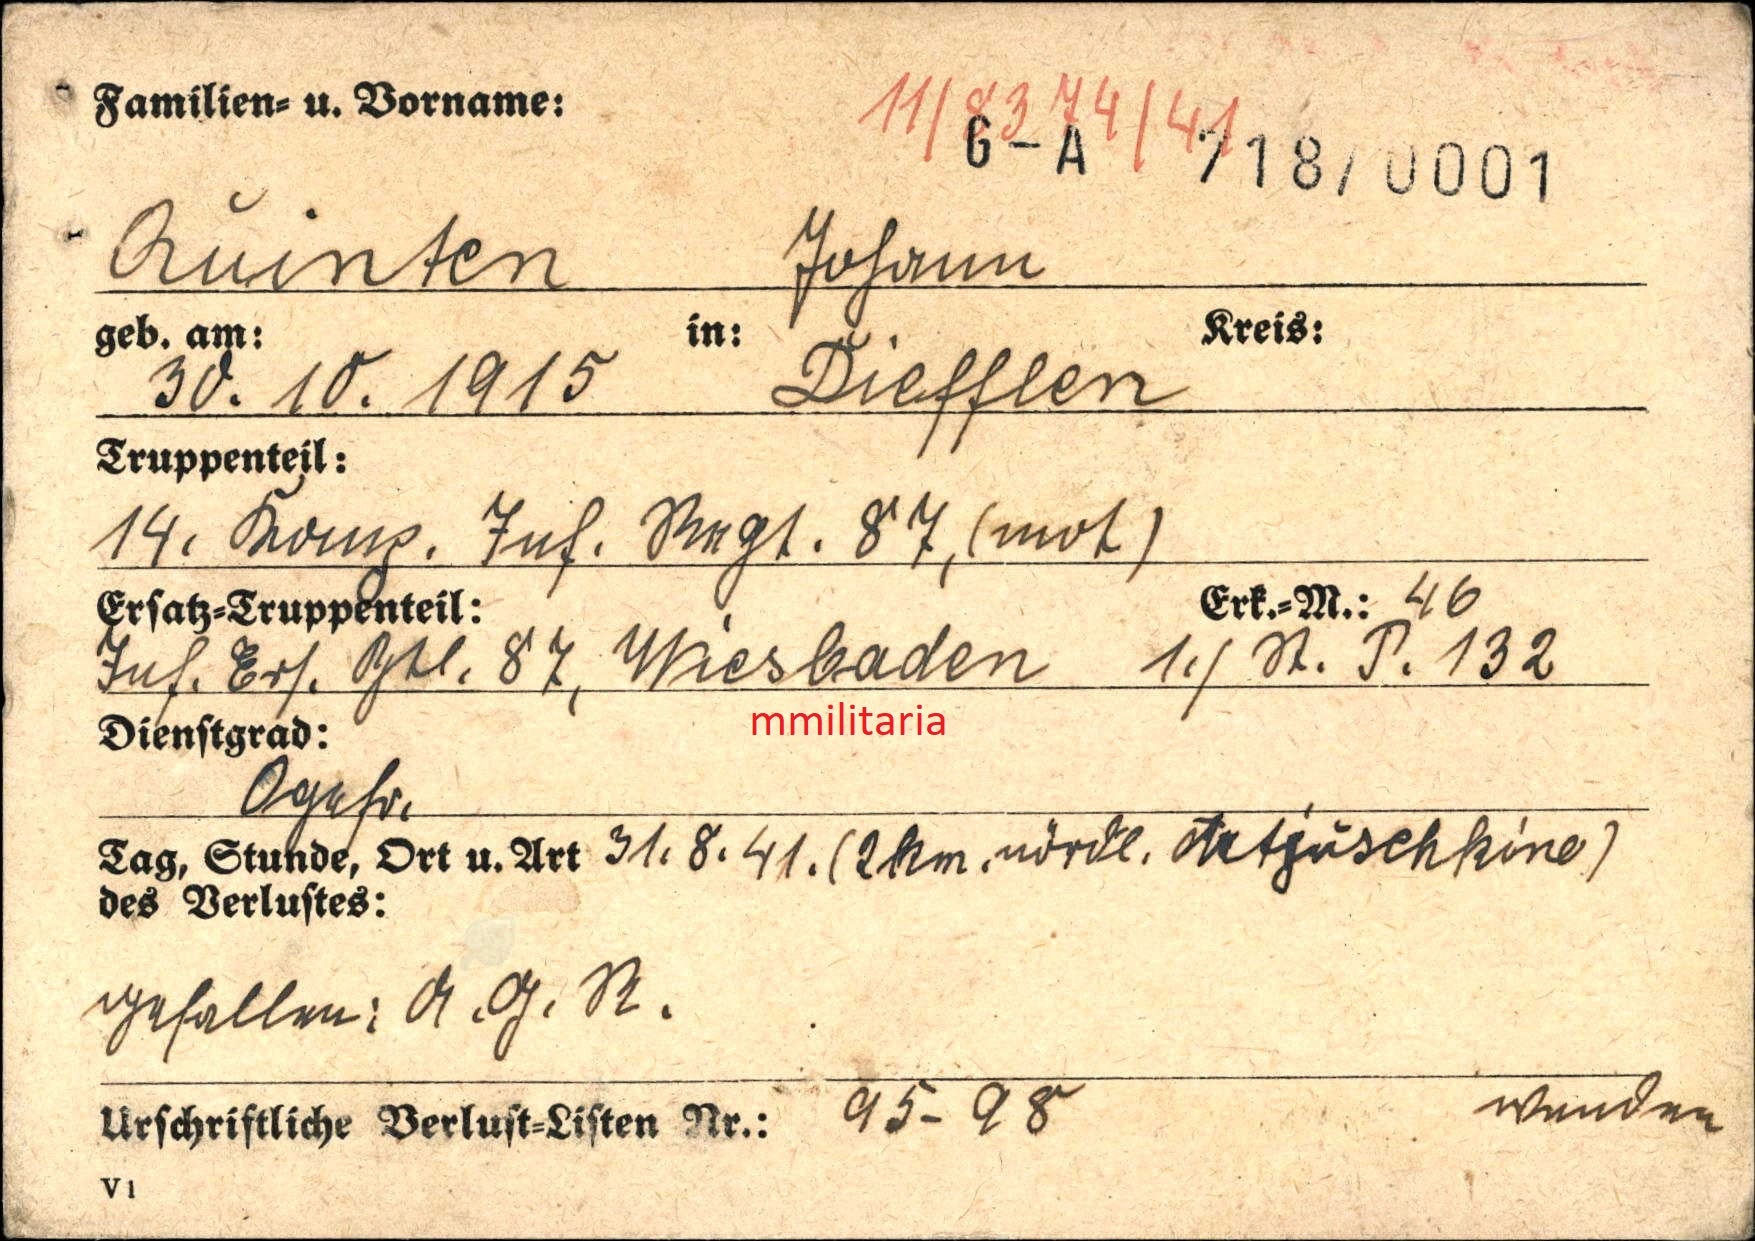 Familien- u. Vorname:
11/8374/41
G-A 718/0001
Quinten Johann
geb. am: in: Kreis:
30. 10. 1915 Diefflen
Truppenteil:
14. Komp. Inf. Regt. 87, (mot)
Ersatz-Truppenteil: Erk.-M.: 46
Inf. Ers. Btl. 87, Wiesbaden 1./ R. P. 132
mmilitaria
Dienstgrad:
Ogefr.
Tag, Stunde, Ort u. Art 31. 8. 41. (2 km. nördl. Artjuschkino)
des Verlustes:
gefallen: A. G. R.
Urschriftliche Verlust-Listen Nr.: 95-98 wenden
V 1